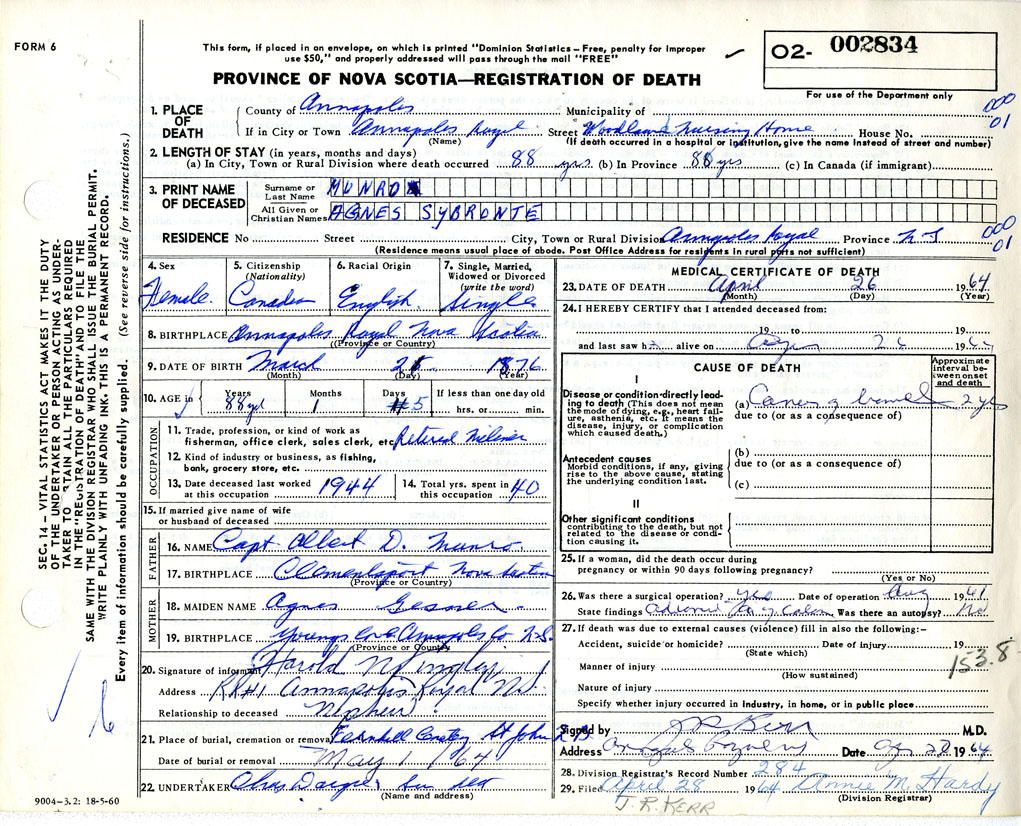 FORM 6
This form, if placed in an envelope, on which is printed "Dominion Statistics – Free, penalty for improper
use $50," and properly addressed will pass through the mail "FREE"
PROVINCE OF NOVA SCOTIA—REGISTRATION OF DEATH
O2- 002834
For use of the Department only
SEC. 14 – VITAL STATISTICS ACT MAKES IT THE DUTY
OF THE UNDERTAKER OR PERSON ACTING AS UNDER-
TAKER TO OBTAIN ALL THE PARTICULARS REQUIRED
IN THE "REGISTRATION OF DEATH" AND TO FILE THE
SAME WITH THE DIVISION REGISTRAR WHO SHALL ISSUE THE BURIAL PERMIT.
WRITE PLAINLY WITH UNFADING INK. THIS IS A PERMANENT RECORD.
Every item of information should be carefully supplied. (See reverse side for instructions.)
1. PLACE OF DEATH
County of Annapolis Municipality of
000
01
If in City or Town Annapolis Royal Street Woodlawn Nursing Home House No.
(Name) (If death occurred in a hospital or institution, give the name instead of street and number)
2. LENGTH OF STAY (in years, months and days)
(a) In City, Town or Rural Division where death occurred 88 yrs (b) In Province 88 yrs (c) In Canada (if immigrant)
3. PRINT NAME OF DECEASED
Surname or Last Name MUNRO
All Given or Christian Names AGNES SYBRONTE
RESIDENCE No Street City, Town or Rural Division Annapolis Royal Province N S
000
01
(Residence means usual place of abode. Post Office Address for residents in rural parts not sufficient)
4. Sex Female
5. Citizenship (Nationality) Canadian
6. Racial Origin English
7. Single, Married, Widowed or Divorced (write the word) Single
8. BIRTHPLACE Annapolis Royal Nova Scotia
(Province or Country)
9. DATE OF BIRTH March 1876
(Month) (Day) (Year)
10. AGE in Years Months Days If less than one day old
88 yrs 1 5 hrs. or min.
OCCUPATION
11. Trade, profession, or kind of work as
fisherman, office clerk, sales clerk, etc. Retired Milliner
12. Kind of industry or business, as fishing,
bank, grocery store, etc.
13. Date deceased last worked at this occupation 1944
14. Total yrs. spent in this occupation 40
15. If married give name of wife
or husband of deceased
FATHER
16. NAME Capt Albert D. Munro
17. BIRTHPLACE Clementsport Nova Scotia
(Province or Country)
MOTHER
18. MAIDEN NAME Agnes Gesner
19. BIRTHPLACE Youngs Cove Annapolis Co N.S.
(Province or Country)
20. Signature of informant Harold
Address RR#1 Annapolis Royal N.S.
Relationship to deceased Nephew
21. Place of burial, cremation or removal Fernhill Cemetery St John N B
Date of burial or removal May 1 /64
22. UNDERTAKER Chas
(Name and address)
9004–3.2: 18-5-60
MEDICAL CERTIFICATE OF DEATH
23. DATE OF DEATH April 26 1964
(Month) (Day) (Year)
24. I HEREBY CERTIFY that I attended deceased from:
19 to 19
and last saw h alive on Apr 26 1964
CAUSE OF DEATH
Approximate interval between onset and death
I
Disease or condition directly leading to death (This does not mean
the mode of dying, e.g., heart failure, asthenia, etc. It means the
disease, injury, or complication which caused death.)
(a) Cancer of bowel 2 yrs
due to (or as a consequence of)
Antecedent causes
Morbid conditions, if any, giving
rise to the above cause, stating
the underlying condition last.
(b)
due to (or as a consequence of)
(c)
II
Other significant conditions
contributing to the death, but not
related to the disease or condition causing it.
25. If a woman, did the death occur during
pregnancy or within 90 days following pregnancy?
(Yes or No)
26. Was there a surgical operation? yes Date of operation Aug 1961
State findings Colon Was there an autopsy? No
27. If death was due to external causes (violence) fill in also the following:–
Accident, suicide or homicide? Date of injury 19
(State which)
153.8
Manner of injury
(How sustained)
Nature of injury
Specify whether injury occurred in industry, in home, or in public place
Signed by J R Kerr M.D.
Address Annapolis Royal Date Apr 28 1964
28. Division Registrar's Record Number 284
29. Filed April 28 1964 Annie M. Hardy
(Division Registrar)
J. R. KERR